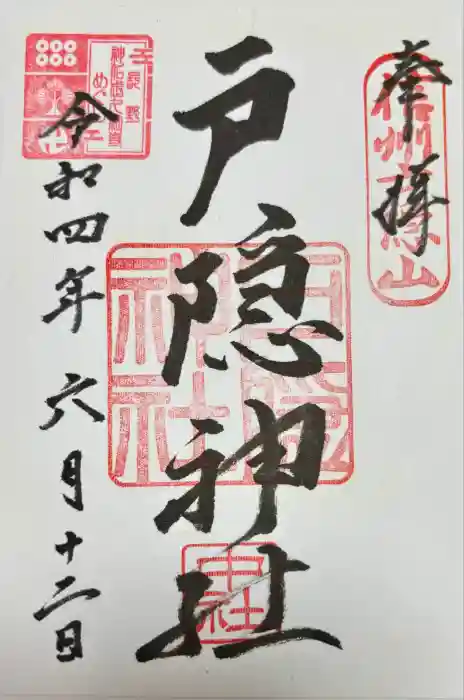 奉拝
信州戸隠山
戸隠神社
戸隠神社
中社
令和四年六月十二日
長野